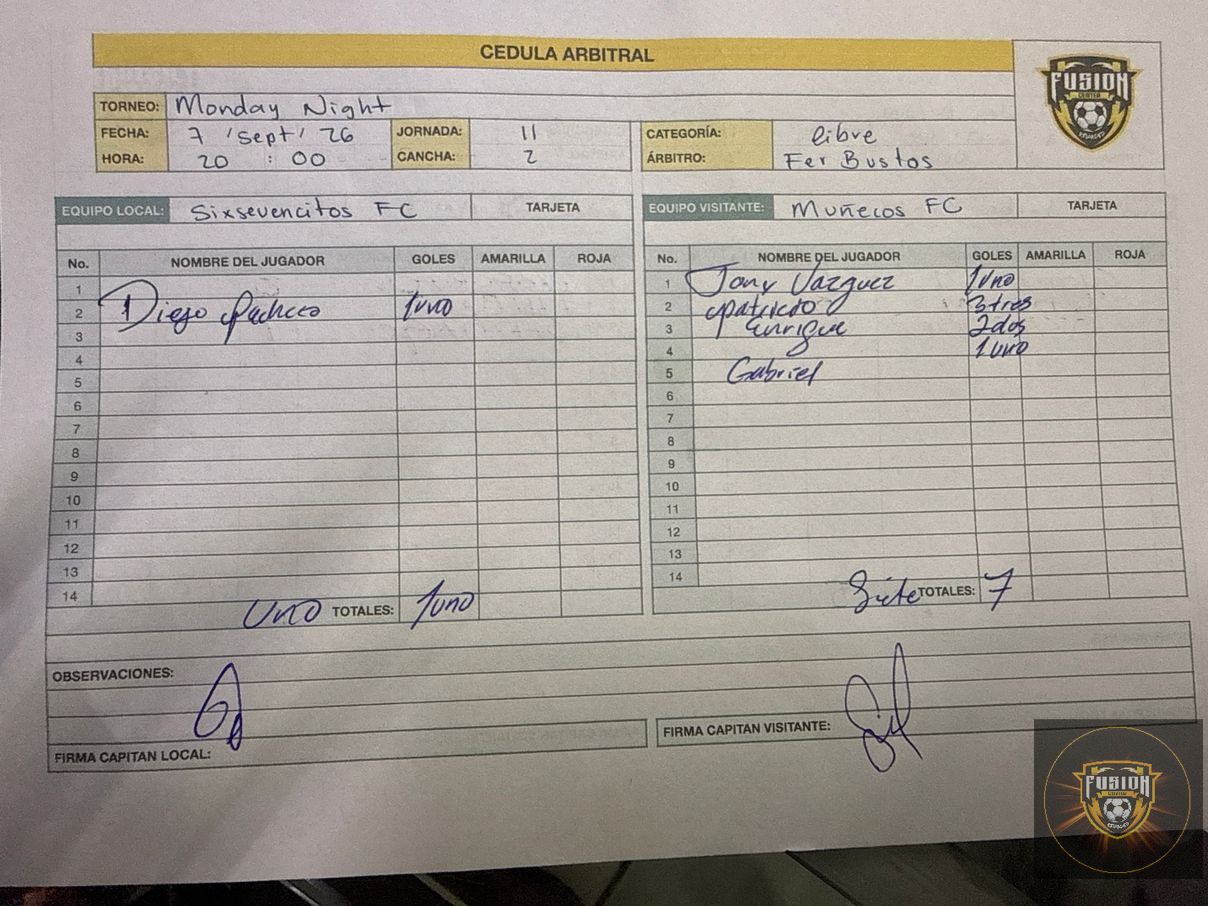 CEDULA ARBITRAL
FUSION
CENTER
TORNEO: Monday Night
FECHA: 7 / Sept / 26 JORNADA: 11 CATEGORÍA: libre
HORA: 20 : 00 CANCHA: 2 ÁRBITRO: Fer Bustos
EQUIPO LOCAL: Sixsevencitos FC TARJETA
No. NOMBRE DEL JUGADOR GOLES AMARILLA ROJA
1
2 Diego Pacheco 1uno
3
4
5
6
7
8
9
10
11
12
13
14
Uno TOTALES: 1uno
EQUIPO VISITANTE: Muñecos FC TARJETA
No. NOMBRE DEL JUGADOR GOLES AMARILLA ROJA
1 Tony Vazquez 1uno
2 Patricio 3tres
3 Enrique 2dos
4 1uno
5 Gabriel
6
7
8
9
10
11
12
13
14
Siete TOTALES: 7
OBSERVACIONES:
FIRMA CAPITAN LOCAL:
FIRMA CAPITAN VISITANTE:
FUSION
CENTER